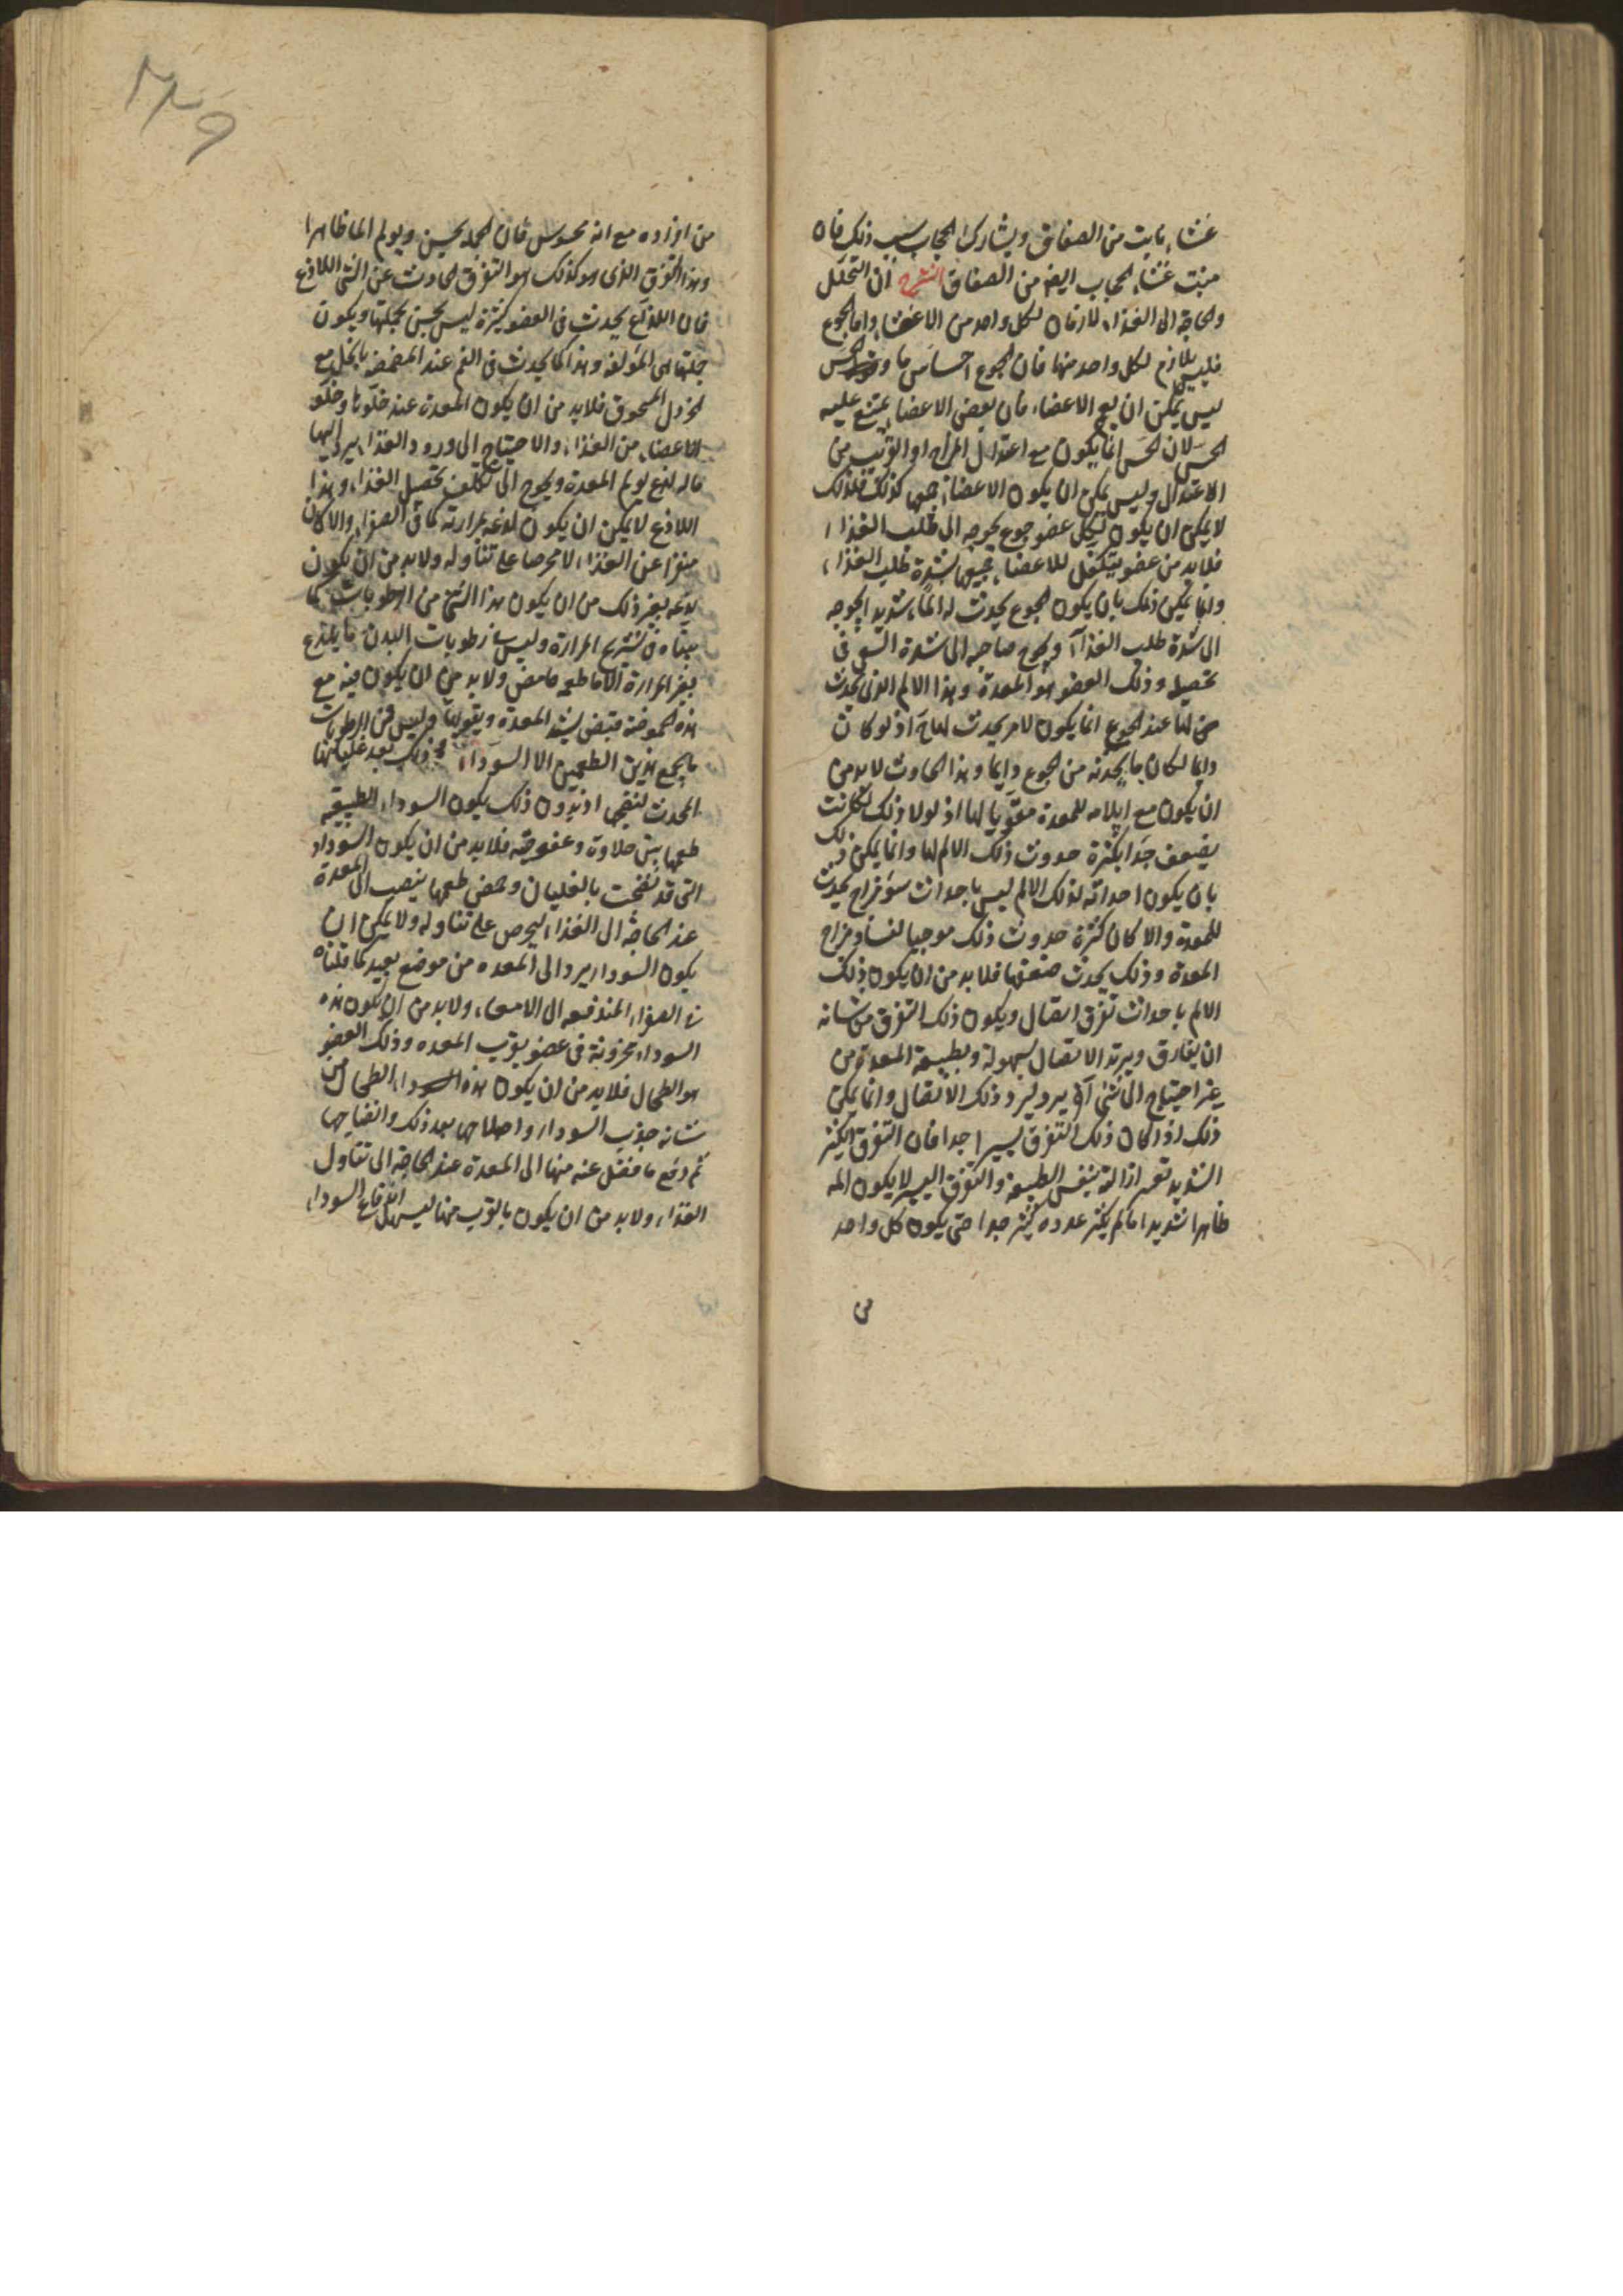 غشاء نابت من الصفاق ويشارك الحجاب بسبب ذلك فان
منبت غشاء الحجاب ايضا من الصفاق الشرح ان التحلل
والحاجة الى الغذاء لازمان لكل واحد من الاعضاء واما الجوع
فليس بلازم لكل واحد منها فان الجوع احساس ما والحس
ليس يمكن ان يعم الاعضاء فان بعض الاعضاء يمتنع عليه
الحس لان الحس انما يكون مع اعتدال المزاج او القرب من
الاعتدال وليس يمكن ان يكون الاعضاء جميعها كذلك فلذلك
لا يمكن ان يكون لكل عضو جوع يحوجه الى طلب الغذاء
فلابد من عضو يتكفل للاعضاء جميعها بشدة طلب الغذاء
وانما يمكن ذلك بان يكون الجوع يحدث له الما شديدا يحوجه
الى شدة طلب الغذاء ويحوج صاحبه الى شدة السعى فى
تحصيله وذلك العضو هو المعدة وهذا الالم الذى يحدث
لها عند الجوع انما يكون لامر يحدث لها اذ لو كان
دايما لكان ما يحدثه من الجوع دايما وهذا الحادث لابد من
ان يكون مع ايلامه للمعدة مقويا لها اذ لولا ذلك لكانت
يضعف جدا بكثرة حدوث ذلك الالم لها وانما يمكن ذلك
بان يكون احداثه لذلك الالم ليس باحداث سوء مزاج يحدث
للمعدة والا كان كثرة حدوث ذلك موجبا لفساد مزاج
المعدة وذلك يحدث ضعفها فلابد من ان يكون ذلك
الالم باحداث تفرق اتصال ويكون ذلك التفرق من شانه
ان يفارق ويرتد الاتصال بسهولة وبطبيعة المعدة من
غير احتياج الى شئ آخر يرد ذلك الاتصال وانما يمكن
ذلك اذا كان ذلك التفرق يسيرا جدا فان التفرق الكثير
الشديد تعسر ازالته بنفس الطبيعة والتفرق اليسير لا يكون المه
ظاهرا شديدا ما لم يكثر عدده كثير جدا حتى يكون كل واحد
من
من افراده مع انه محسوس فان الجلد يحس ويولم الما ظاهرا
وهذا التفرق الذى هو كذلك هو التفرق الحادث عن الشئ اللاذع
فان اللذع يحدث فى العضو كثيرة ليس يحس ويكون
جملتها هى المؤلفة وهذا كما يحدث فى الفم عند المضمضة بالخل مع
الخردل المسحوق فلابد من ان يكون المعدة عند خلوها وخلو
الاعضاء من الغذاء والاحتياج الى ورود الغذاء يرد اليها
ماله لذع يولم المعدة ويحوج الى تكلف تحصيل الغذاء وهذا
اللاذع لا يمكن ان يكون لذعه بمرارته كما فى الصفراء والا كان
منفرا عن الغذاء لا محرصا على تناوله ولابد من ان يكون
لذعه بغير ذلك من ان يكون هذا الشئ من الرطوبات كما
بيناه فى تشريح المرارة وليس من رطوبات البدن ما يلذع
بغير المرارة الا ما طعمه حامض ولابد من ان يكون فيه مع
هذه الحموضة قبض ليشد المعدة ويقويها وليس فى الرطوبات
ما يجمع هذين الطعمين الا السوداء وذلك بعد غليانها
المحدث لنضجها اذ بدون ذلك يكون السوداء الطبيعية
طعمها بين حلاوة وعفوصة فلابد من ان يكون السوداء
التى قد نضجت بالغليان وحمض طعمها ينصب الى المعدة
عند الحاجة الى الغذاء ليحرص على تناوله ولا يمكن ان
يكون السوداء يرد الى المعدة من موضع بعيد كما قلناه
فى الصفراء المندفعة الى الامعاء ولابد من ان يكون هذه
السوداء مخزونة فى عضو بقرب المعدة وذلك العضو
هو الطحال فلابد من ان يكون هذه الطحال من
شانه جذب السوداء واصلاحها بعد ذلك وانضاجها
ثم دفع ما فضل عنه منها الى المعدة عند الحاجة الى تناول
الغذاء ولابد من ان يكون بالقرب منها ليسهل اندفاع السوداء